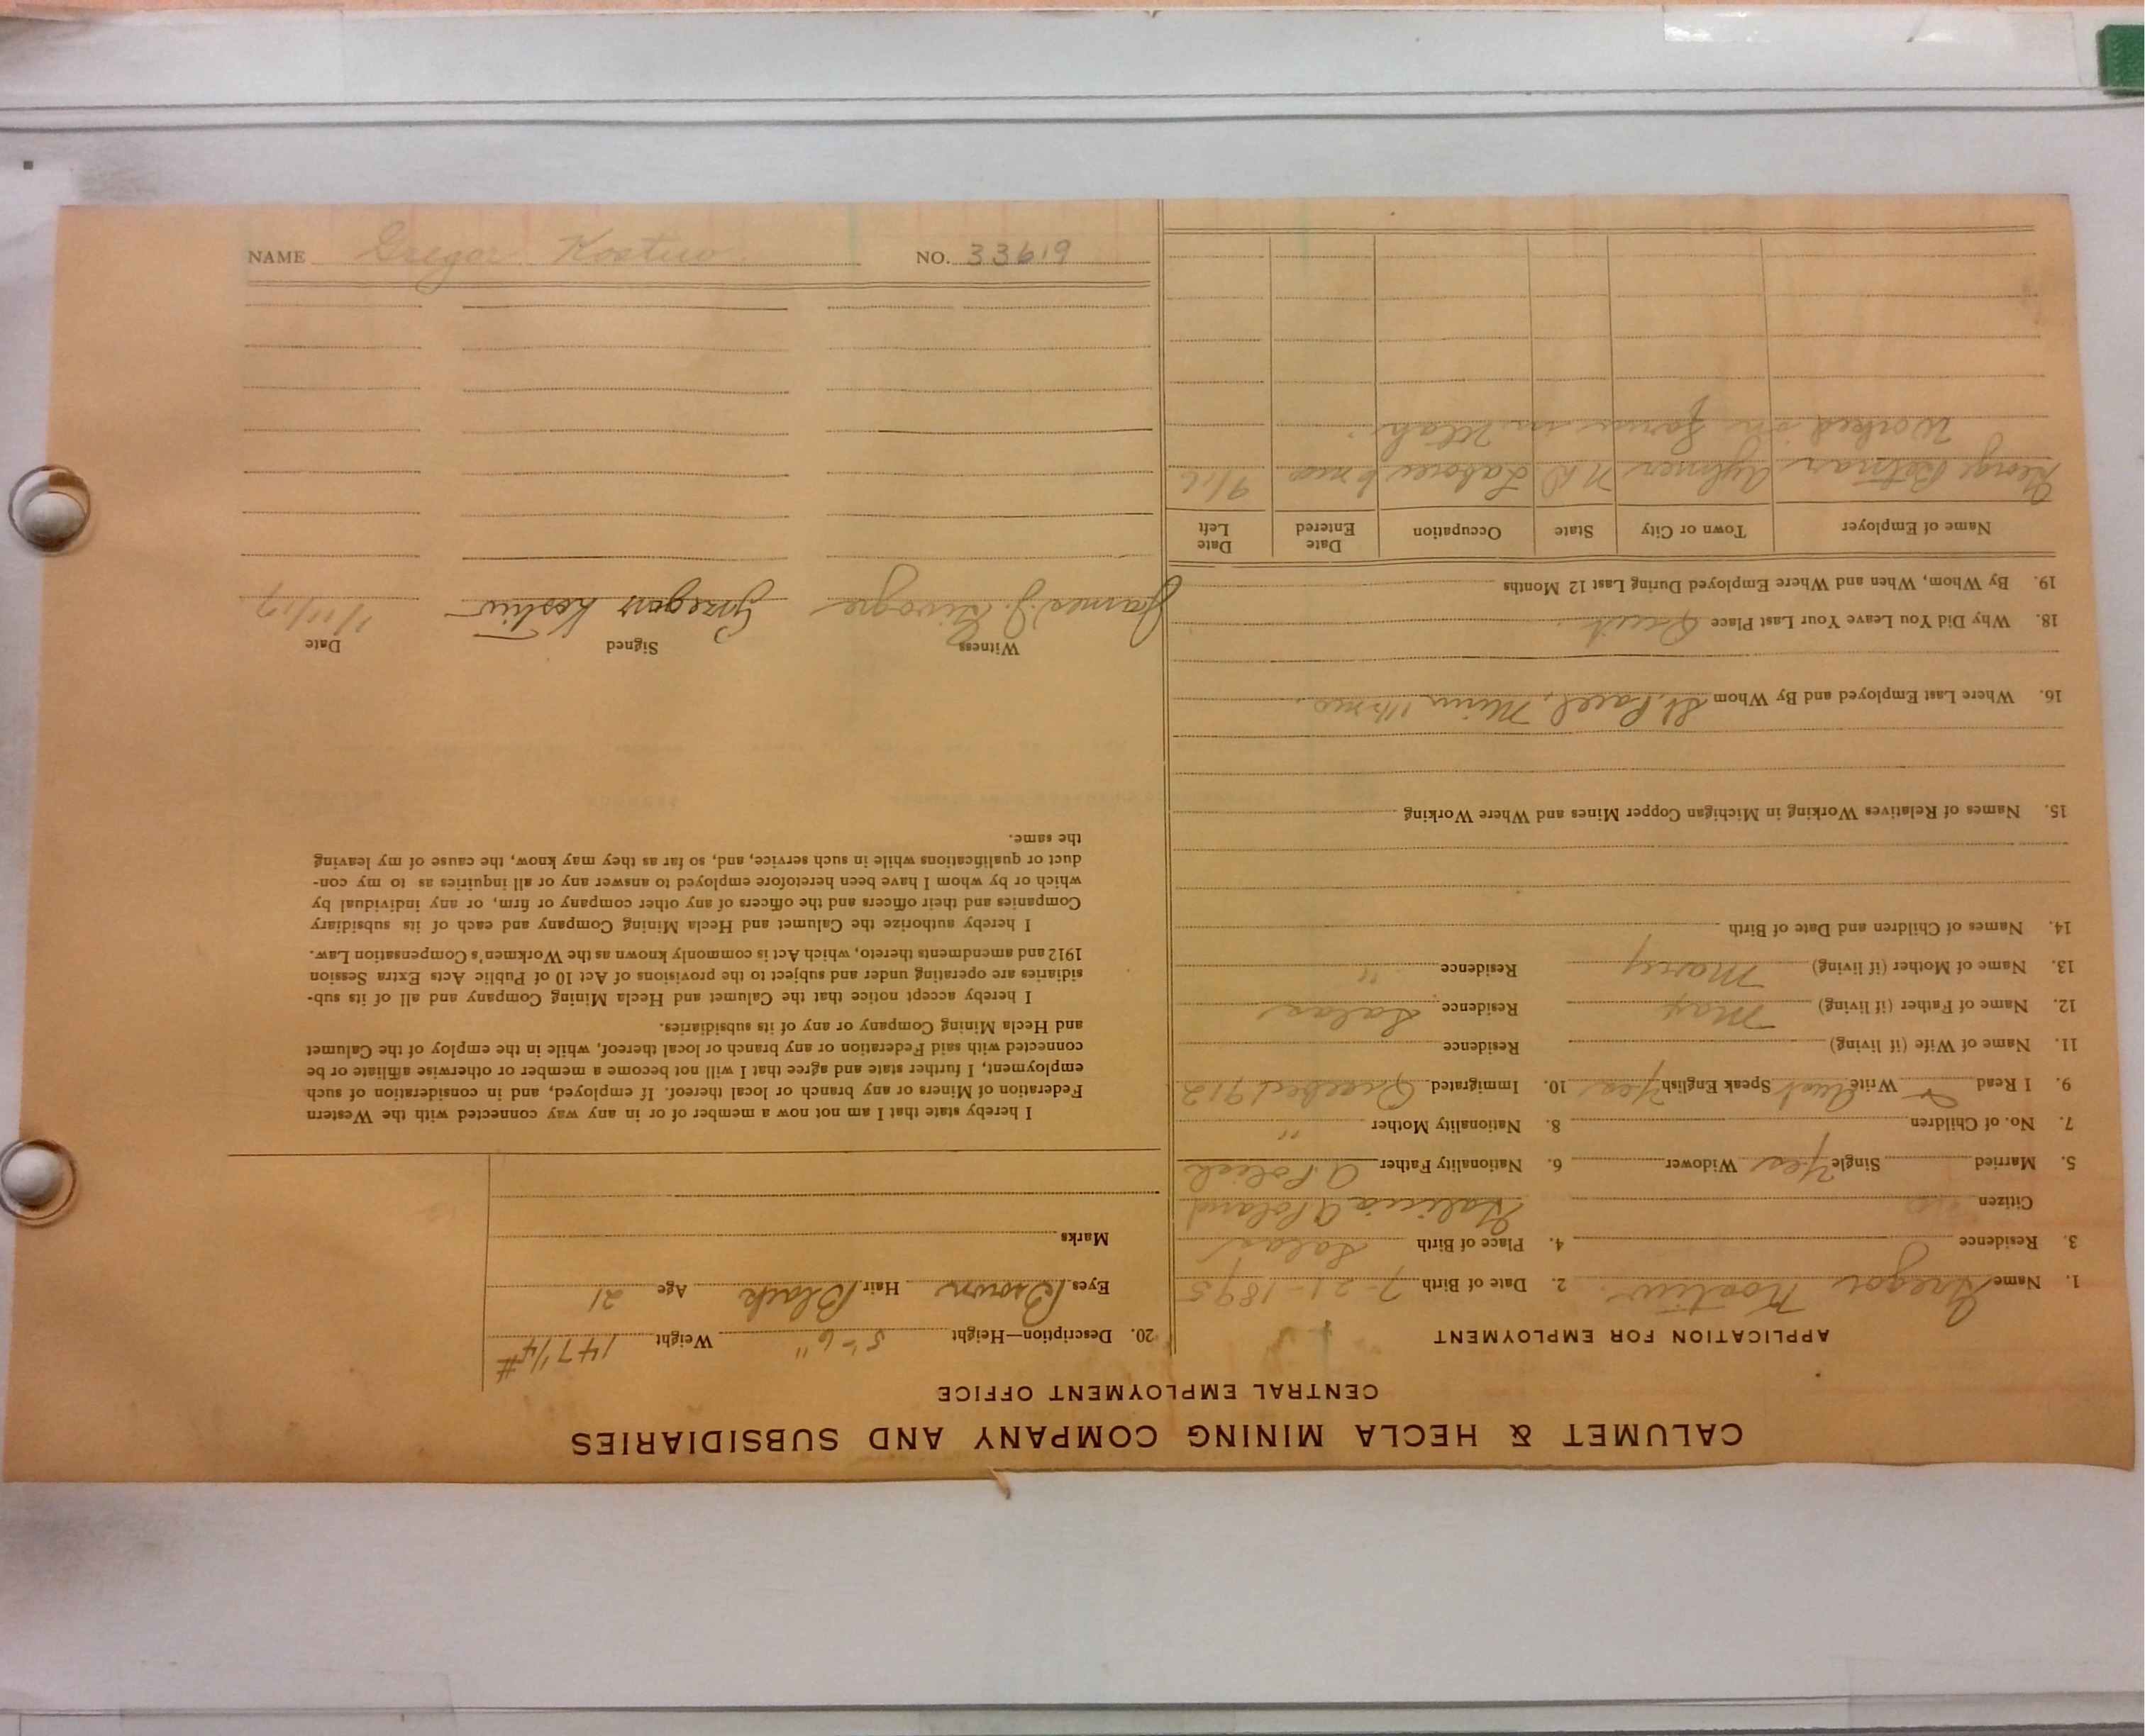 CALUMET & HECLA MINING COMPANY AND SUBSIDIARIES
CENTRAL EMPLOYMENT OFFICE
APPLICATION FOR EMPLOYMENT
1. Name Gregor Kostiw 2. Date of Birth 7-21-1895
3. Residence 4. Place of Birth Salas
Citizen no Galicia A Poland
5. Married Single Yes Widower 6. Nationality Father A Polish
7. No. of Children 8. Nationality Mother "
9. I Read Write Speak English Yes 10. Immigrated 1912
11. Name of Wife (if living) Residence
12. Name of Father (if living) Max Residence Salas
13. Name of Mother (if living) Mary Residence "
14. Names of Children and Date of Birth
15. Names of Relatives Working in Michigan Copper Mines and Where Working
16. Where Last Employed and By Whom St. Paul, Minn
18. Why Did You Leave Your Last Place Quit
19. By Whom, When and Where Employed During Last 12 Months
Name of Employer Town or City State Occupation Date Entered Date Left
George Aylmer N D Laborer 6 mos 9/16
Worked on farm in Utah.
20. Description—Height 5'-6" Weight 147 1/4 #
Eyes Brown Hair Black Age 21
Marks
I hereby state that I am not now a member of or in any way connected with the Western
Federation of Miners or any branch or local thereof. If employed, and in consideration of such
employment, I further state and agree that I will not become a member or otherwise affiliate or be
connected with said Federation or any branch or local thereof, while in the employ of the Calumet
and Hecla Mining Company or any of its subsidiaries.
I hereby accept notice that the Calumet and Hecla Mining Company and all of its sub-
sidiaries are operating under and subject to the provisions of Act 10 of Public Acts Extra Session
1912 and amendments thereto, which Act is commonly known as the Workmen's Compensation Law.
I hereby authorize the Calumet and Hecla Mining Company and each of its subsidiary
Companies and their officers and the officers of any other company or firm, or any individual by
which or by whom I have been heretofore employed to answer any or all inquiries as to my con-
duct or qualifications while in such service, and, so far as they may know, the cause of my leaving
the same.
Witness Signed Date
James J. Grzegorz Kostiw 1/11/17
NAME Gregor Kostiw NO. 33619